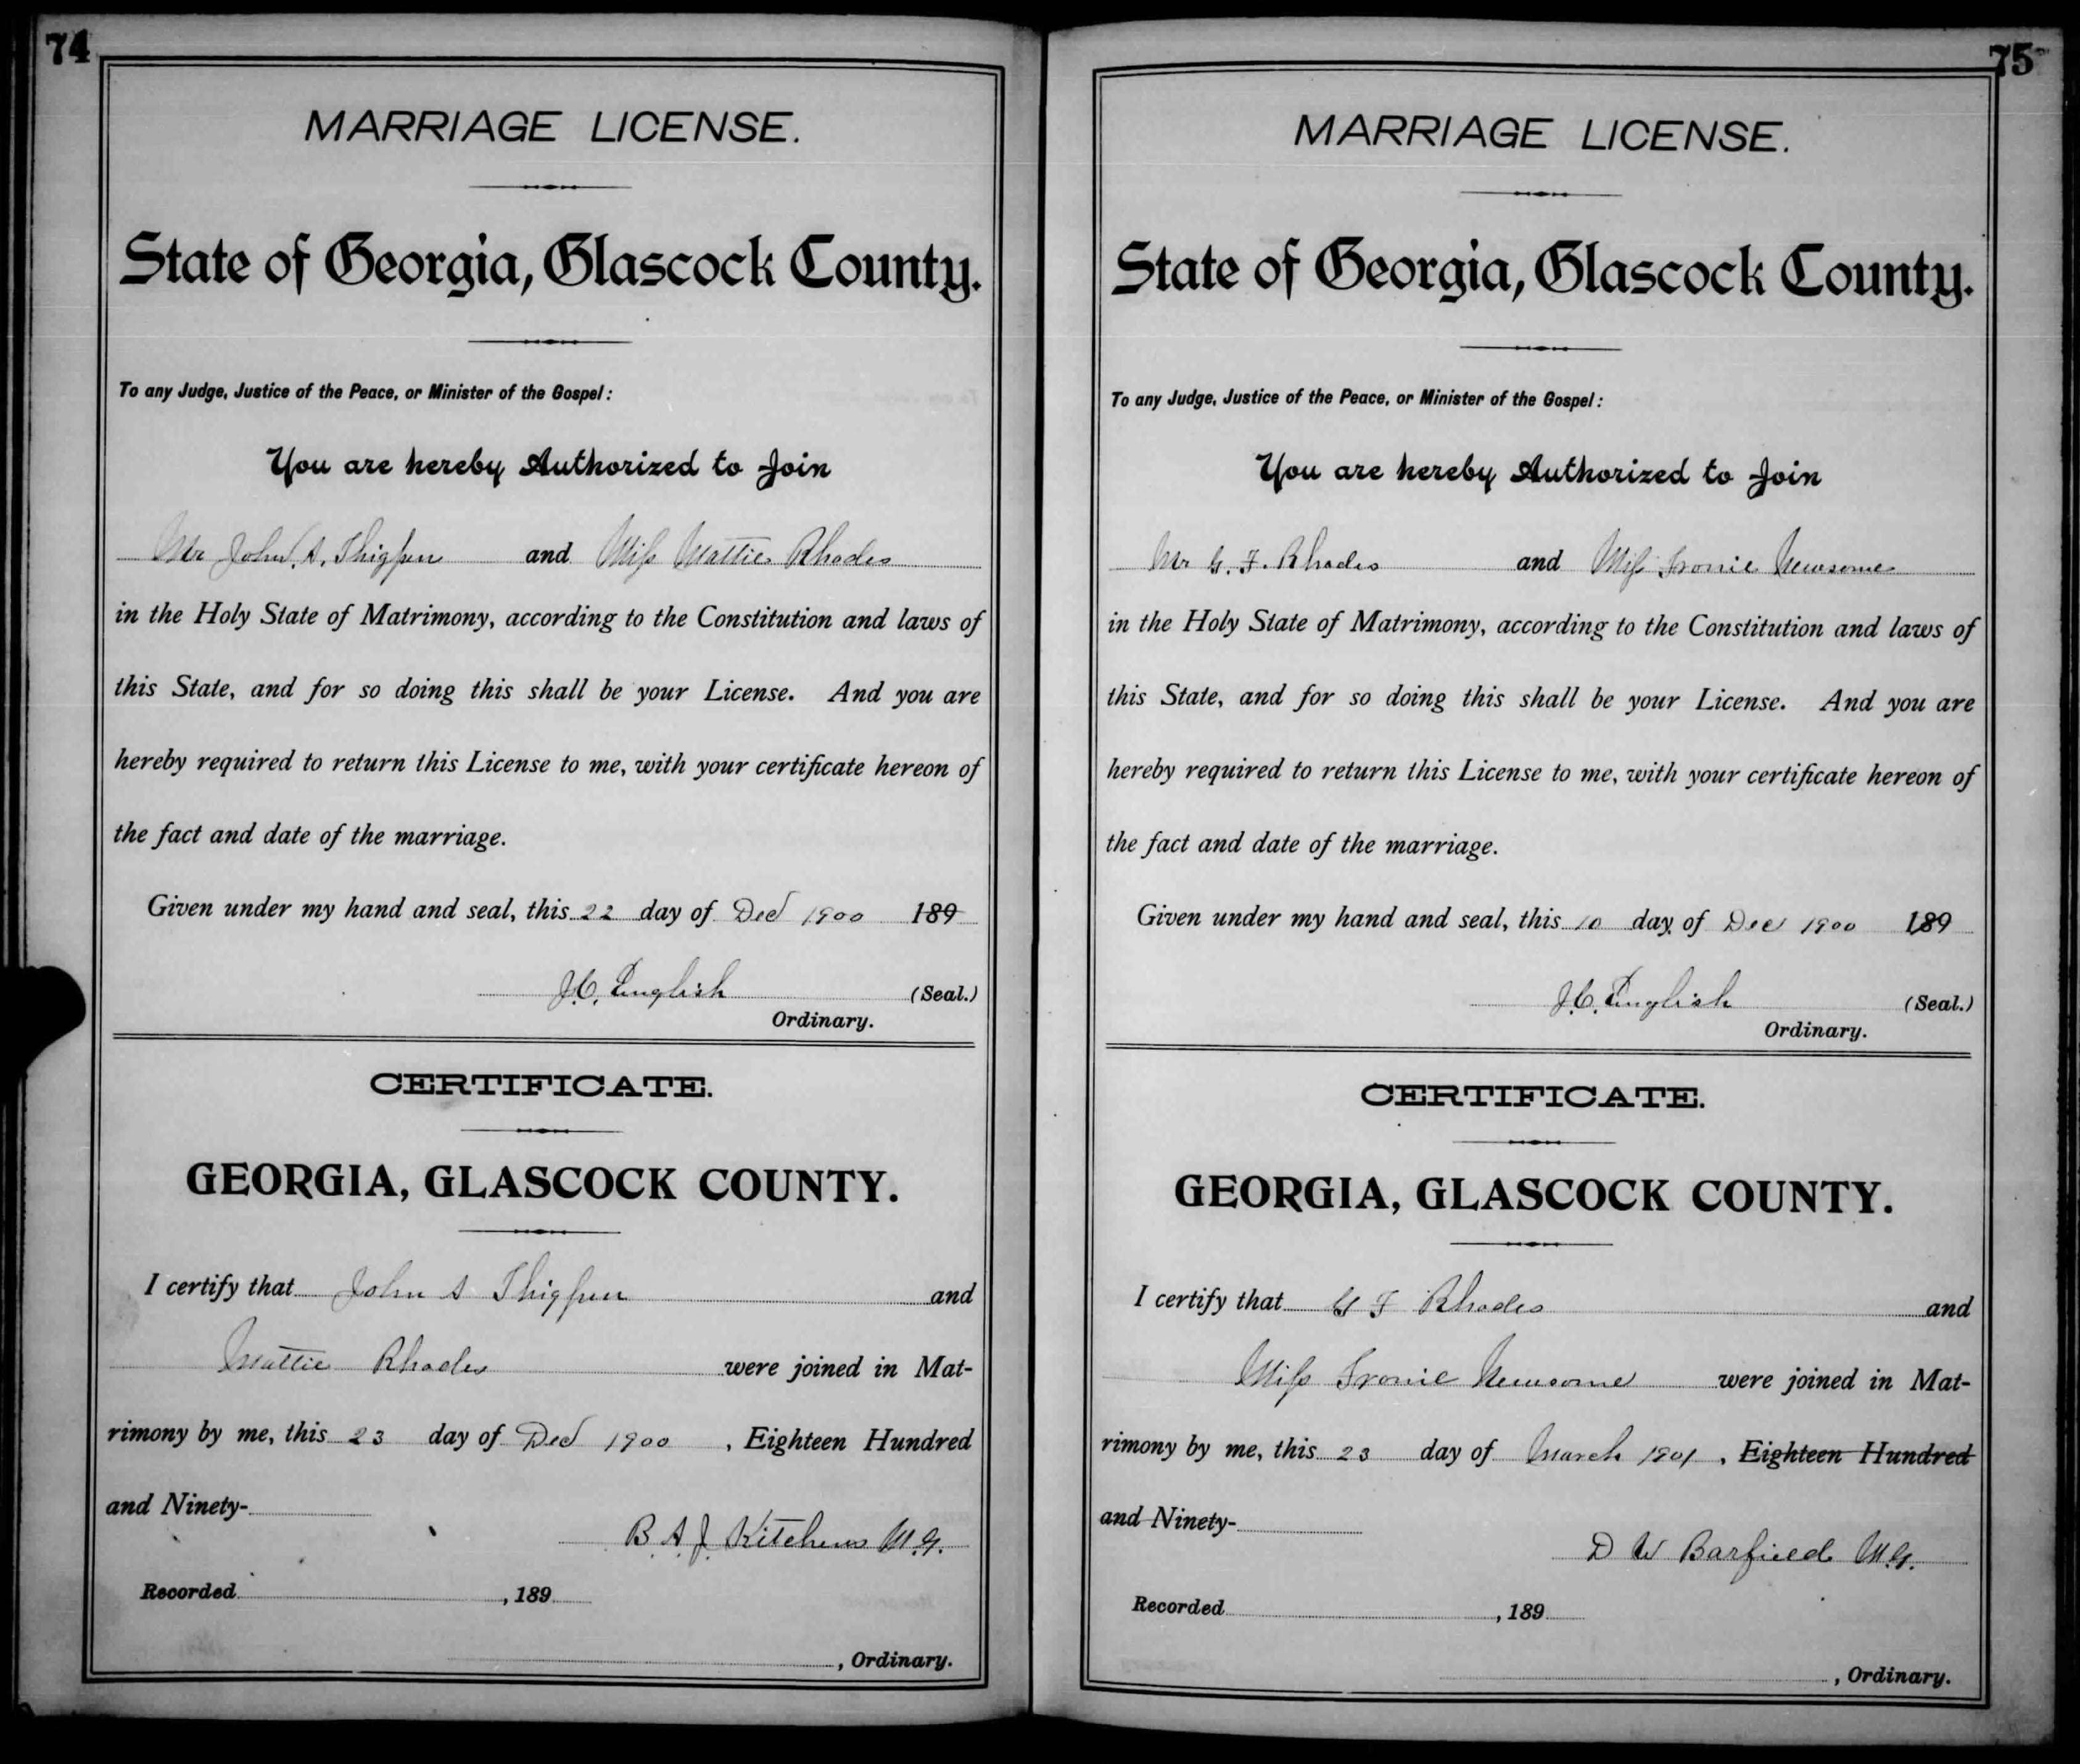 74
MARRIAGE LICENSE.
State of Georgia, Glascock County.
To any Judge, Justice of the Peace, or Minister of the Gospel:
You are hereby Authorized to Join
Mr John. A. Thigpen and Miss Mattie Rhodes
in the Holy State of Matrimony, according to the Constitution and laws of
this State, and for so doing this shall be your License. And you are
hereby required to return this License to me, with your certificate hereon of
the fact and date of the marriage.
Given under my hand and seal, this 22 day of Dec 1900 189
J.C. English (Seal.)
Ordinary.
CERTIFICATE.
GEORGIA, GLASCOCK COUNTY.
I certify that John A Thigpen and
Mattie Rhodes were joined in Mat-
rimony by me, this 23 day of Dec 1900, Eighteen Hundred
and Ninety-
B. A. J. Kitchens M.G.
Recorded , 189
, Ordinary.
75
MARRIAGE LICENSE.
State of Georgia, Glascock County.
To any Judge, Justice of the Peace, or Minister of the Gospel:
You are hereby Authorized to Join
Mr G. F. Rhodes and Miss Ironie Newsome
in the Holy State of Matrimony, according to the Constitution and laws of
this State, and for so doing this shall be your License. And you are
hereby required to return this License to me, with your certificate hereon of
the fact and date of the marriage.
Given under my hand and seal, this 10 day of Dec 1900 189
J.C. English (Seal.)
Ordinary.
CERTIFICATE.
GEORGIA, GLASCOCK COUNTY.
I certify that G F Rhodes and
Miss Ironie Newsome were joined in Mat-
rimony by me, this 23 day of March 1901, Eighteen Hundred
and Ninety-
D W Barfield M.G.
Recorded , 189
, Ordinary.